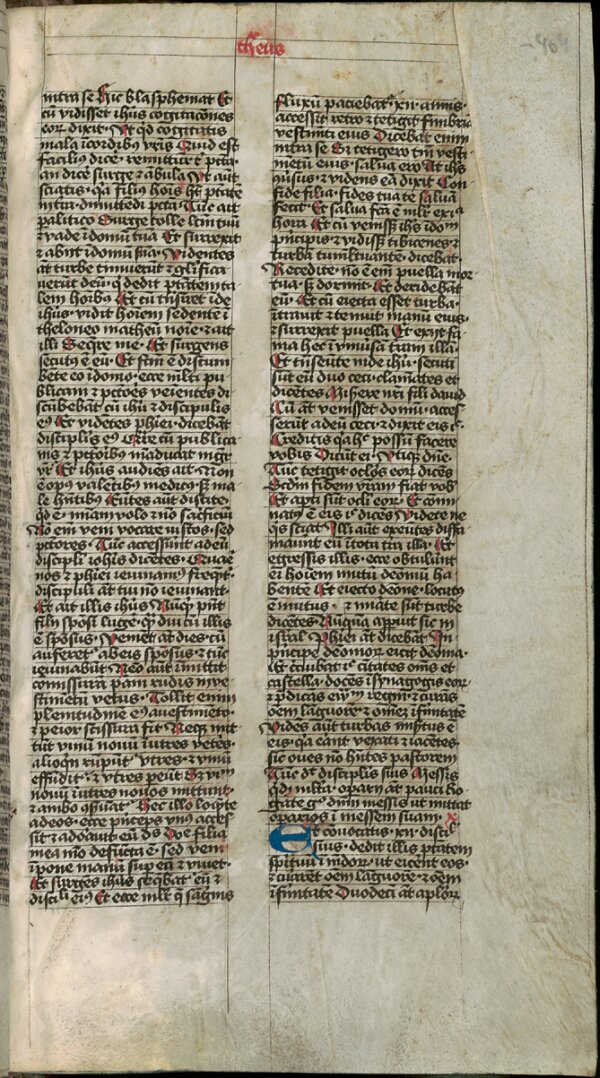 theus
intra se Hic blasphemat Et
cū vidisset ihus cogitacōnes
eoꝝ dixit · Vt qd cogitatis
mala ī cordibꝰ vr̄is Quid est
faciliꝰ dice᷑ · remittūt᷑ t᷑ pctā·
an dice᷑ surge ⁊ ābula Vt aut̄
sciatis · qꝛ filiꝰ hoīs hꝫ ptātē
ī t᷑ra · dimittedi pctā· Tūc ait
palitico Surge tolle lc̄m tuū
⁊ vade ī domū tuā Et surrexit
⁊ abiit ī domū suā · Videntes
at̄ turbe timuerūt ⁊ glifica
uerūt deū · q dedit ptātem ta
lem hoībꝰ Et cū trāsiret īde
ihus · vidit hoīem sedente ī
theloneo matheū noīe · ⁊ ait
illi Seq̄re me · Et surgens
secutꝰ ē eū · Et fc̄m ē discum
bēte eo ī domo · ecce ml̄ti pu
blicani ⁊ pctōes veīentes di
scūbebāt cū ihū ⁊ discipulis
eꝰ Et vidētes phīei · dicebāt
discīplis eꝰ Qᷓre cū publica
nis ⁊ pctōribꝰ māducat mgr̄
vr̄ Et ihūs audies ait · Nō n
ē opꝰ valētibꝰ medicꝰ sꝫ ma
le hn̄tibꝰ Eūtes aut̄ discite·
qd ē · miam volo ⁊ nō sacficiū
Nō em̄ veni vocare iustos · sed
pctores · Tūc accesserūt ad eū
discipli iohīs dicētes · Quare
nos ⁊ phīei ieiunamꝰ freq̄t᷑·
discipuli at̄ tui nō ieiunant·
Et ait illis ihūs Nūqͥ pn̄t
filij sposi luge᷑ · q̄diu cū illis
ē sposus · Veniēt at̄ dies cū
auferet᷑ ab eis sposus ⁊ tūc
ieiunabūt Nēo aut̄ īmittit
comissurā pāni rudis in ve
stimētū vetus · Tollit enim
plenitudinē eꝰ a vestimēto·
⁊ peior scissura fit Neqꝫ mit
tūt vinū nouū ī utres vetēs·
alioqn rūpūt᷑ vtres · ⁊ vinū
effūdit᷑ · ⁊ vtres peūt Sꝫ vīm
nouū ī utres nouos mittunt·
⁊ ambo ꝯseruāt᷑ Hec illo loq̄te
ad eos · ecce p̄nceps vnꝰ acces
sit ⁊ adorauit eū ds̄ Dn̄e filia
mea mō defūcta ē · sed veni
⁊ pone manū sup eā ⁊ viuet·
Et surges ihūs seq̄bat᷑ eū ⁊
discīli eiꝰ Et ecce ml̄r q̄ sāgnis
fluxū patiebat᷑ · xii · annis·
accessit retro ⁊ tetigit fimbriā
vestimti eius Dicebat enim
intra se Si tetigero tm̄ vesti
mētū eius · salua ero At ihs
ꝯuersus · ⁊ videns eā dixit Con
fide filia · fides tua te saluā
fecit Et salua fcā ē ml̄r ex il·
hora Et cū veniss ihs ī dom̄
p̄ncipis ⁊ vidiss tibicenes ⁊
turbā tumltuantē · dicebat·
Recedite · nō ē em̄ puella mor
tua · sꝫ dormit Et deridebāt
eū · Et cū eiecta esset turba·
ītrauit ⁊ tenuit manū eius·
⁊ surrexit puella Et exijt fa
ma hec ī vniūsā terrā illā·
Et trāseunte īnde ihū · secuti
sūt eū duo ceci · clamātes et
dicētes Misere nr̄i fili dauid
Cū at̄ venisset domū · acces
serūt ad eū ceci · ⁊ dixit eis iꝰ
Creditis qꝛ hꝰ possū facere
vobis Dicūt ei · Vtiqꝫ dn̄e·
Tūc tetigit oclōs eoꝝ dicēs
Scdm fidem vrām fiat vob
Et apti sūt ocli eoꝝ · Et comi
natꝰ ē eis iꝰ dicēs Videte ne
qͥs sciat Illi aut̄ exeūtes diffa
mauerūt eū ī tota t᷑ra illa · Et
egressis illis · ecce obtulerūt
ei hoīem mutū demoīū ha
bente Et eiecto demoīe · locutꝰ
ē mutus · ⁊ mirate sūt turbe
dicētes Nūquā apparuit sic in
isrāl Phīei at̄ dicebāt In
p̄ncipe demoīoꝝ eicit demoīa·
Et circuibat ihs citates om̄s et
castella · docēs ī synagogis eoꝝ
⁊ p̄dicās euᵐ regni · ⁊ curās
oēm lāguorē · ⁊ omēꝫ īfirmitatē
Vides aut̄ turbas misertus ē
eis · qꝛ erāt vexati ⁊ iacētes·
sic oues nō hn̄tes pastorem
Tūc dͭ discīplis suis Messis
qͥdē multa · opārij at̄ pauci Ro
gate gͦ dn̄m messis ut mittat
opārios ī messem suam · x
Et conuocatis · xii · discīl
suis · dedit illis ptātem
spirituū īmūdoꝝ · ut eicerent eos·
⁊ curarēt oēm lāguorē · ⁊ oēm
īfirmitatē Duodecī at̄ aplōꝝ